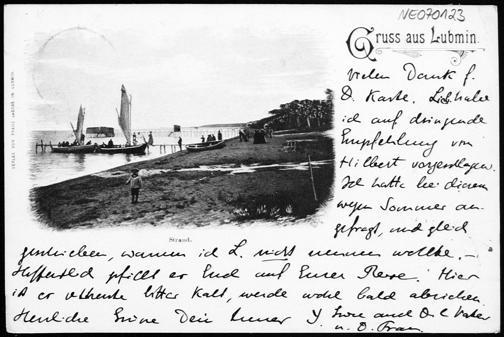 NE070123
Gruss aus Lubmin.
Vielen Dank f.
D. Karte.
ich auf dringende
Empfehlung von
Hilbert vorgeschlagen.
Ich hatte bei diesem
wegen Sommer an-
gefragt, und gleich
geschrieben, warum ich L. nicht nennen wollte. –
Hoffentlich gefällt es Euch auf Eurer Reise. Hier
ist es bitter kalt, werde wohl bald abreisen.
Herzliche Grüsse Dein
u. D. Frau
Strand.